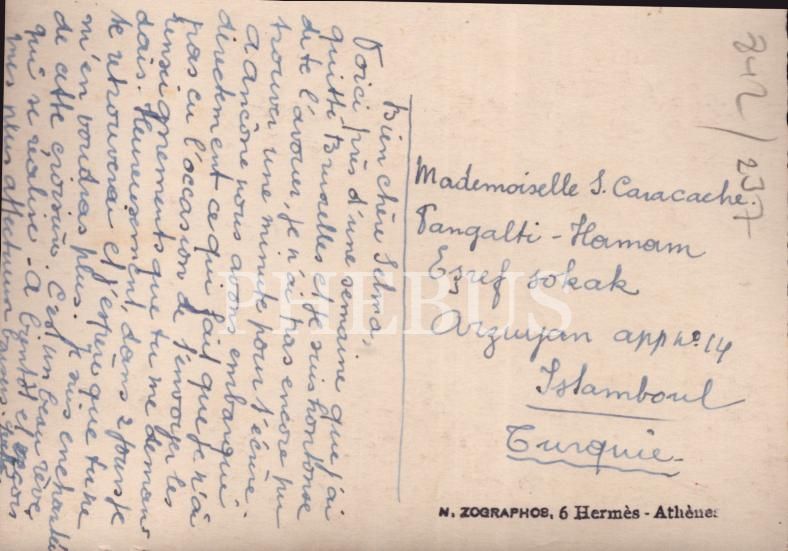 Bien chère Selma,
Voici près d'une semaine que j'ai
quitté Bruxelles et je suis honteuse
de te l'avouer, je n'ai pas encore pu
trouver une minute pour t'écrire.
A Ancône nous avons embarqué
directement ce qui fait que je n'ai
pas eu l'occasion de t'envoyer les
renseignements que tu me deman
dais. Heureusement, dans 2 jours je
te retrouverai et j'espère que tu ne
m'en voudras plus. Je suis enchantée
de cette croisière. C'est un beau rêve
qui se réalise. A bientôt et reçois
mes plus affectueux baisers.
842/237
Mademoiselle S. Caracache.
Pangalti - Hamam
Eşref sokak
Arzuyan app no. 14
Istamboul
Turquie
N. ZOGRAPHOS, 6 Hermès - Athènes
PHEBUS